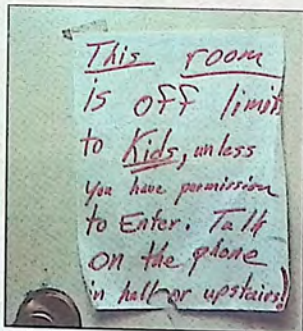 This room
is off limits
to Kids, unless
you have permission
to Enter. Talk
on the phone
in hall or upstairs!